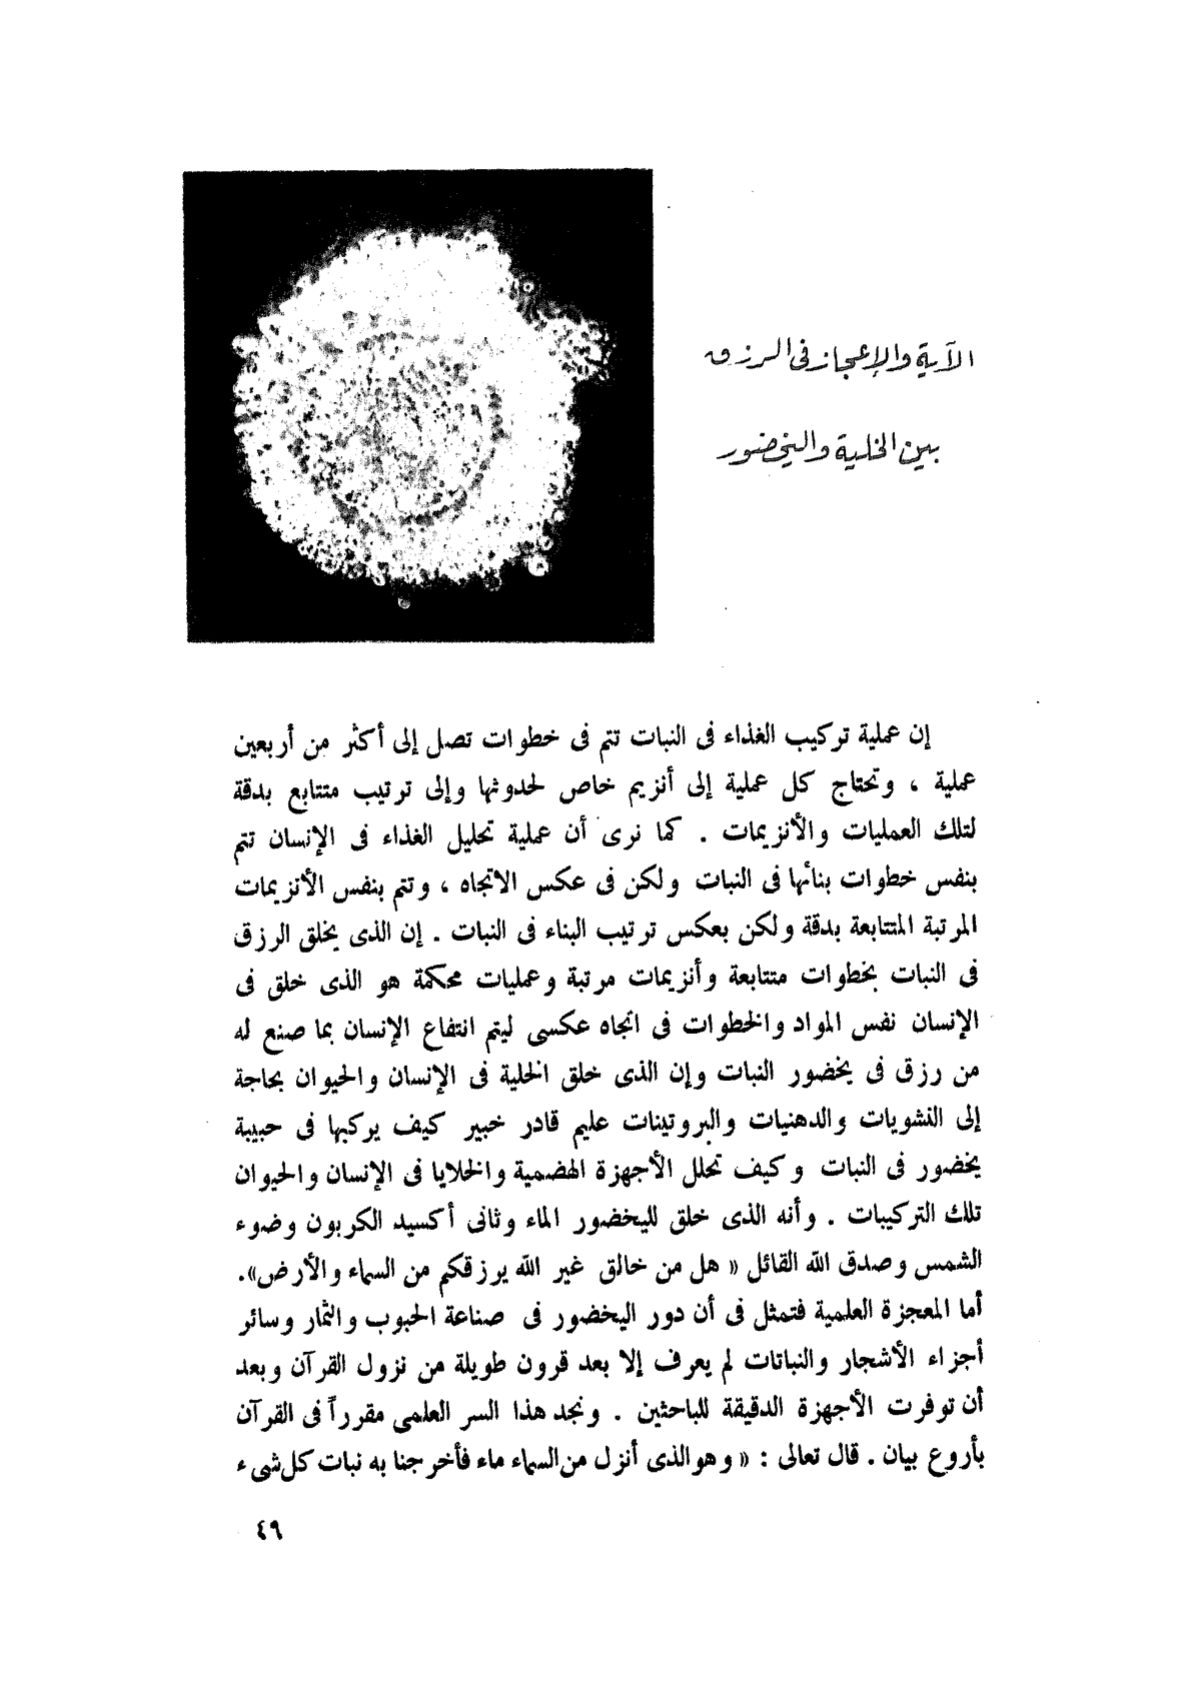 الآية والإعجاز فى الرزق
بين الخلية واليخضور
إن عملية تركيب الغذاء فى النبات تتم فى خطوات تصل إلى أكثر من أربعين
عملية ، وتحتاج كل عملية إلى أنزيم خاص لحدوثها وإلى ترتيب متتابع بدقة
لتلك العمليات والأنزيمات . كما نرى أن عملية تحليل الغذاء فى الإنسان تتم
بنفس خطوات بنائها فى النبات ولكن فى عكس الاتجاه ، وتتم بنفس الأنزيمات
المرتبة المتتابعة بدقة ولكن بعكس ترتيب البناء فى النبات . إن الذى يخلق الرزق
فى النبات بخطوات متتابعة وأنزيمات مرتبة وعمليات محكمة هو الذى خلق فى
الإنسان نفس المواد والخطوات فى اتجاه عكسى ليتم انتفاع الإنسان بما صنع له
من رزق فى يخضور النبات وإن الذى خلق الخلية فى الإنسان والحيوان بحاجة
إلى النشويات والدهنيات والبروتينات عليم قادر خبير كيف يركبها فى حبيبة
يخضور فى النبات وكيف تحلل الأجهزة الهضمية والخلايا فى الإنسان والحيوان
تلك التركيبات . وأنه الذى خلق لليخضور الماء وثانى أكسيد الكربون وضوء
الشمس وصدق الله القائل « هل من خالق غير الله يرزقكم من السماء والأرض».
أما المعجزة العلمية فتمثل فى أن دور اليخضور فى صناعة الحبوب والثمار وسائر
أجزاء الأشجار والنباتات لم يعرف إلا بعد قرون طويلة من نزول القرآن وبعد
أن توفرت الأجهزة الدقيقة للباحثين . ونجد هذا السر العلمى مقرراً فى القرآن
بأروع بيان . قال تعالى : « وهو الذى أنزل من السماء ماء فأخرجنا به نبات كل شىء
٤٩